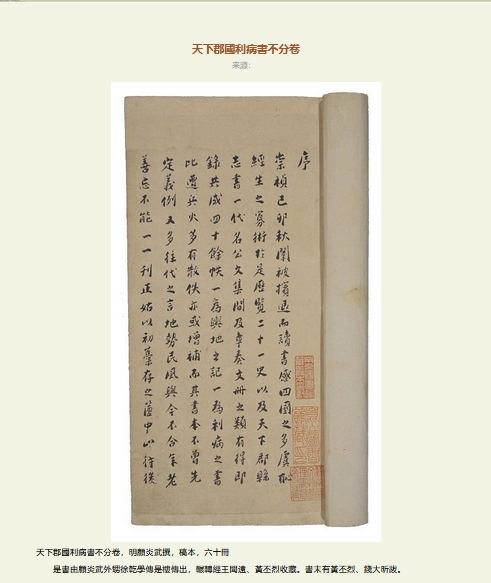 天下郡國利病書不分卷
来源:
序
崇禎己卯秋闈被擯退而讀書感四國之多虞恥
經生之寡術於是歷覽二十一史以及天下郡縣
志書一代名公文集間及章奏文冊之類有得即
錄共成四十餘帙一為輿地之記一為利病之書
比遭兵火多有散佚亦或增補而其書本不曾先
定義例又多往代之言地勢民風與今不合年老
善忘不能一一刊正姑以初藁存之篋中以待後
天下郡國利病書不分卷，明顧炎武撰，稿本，六十冊
是書由顧炎武外甥徐乾學傳是樓傳出，輾轉經王聞遠、黃丕烈收藏。書末有黃丕烈、錢大昕跋。